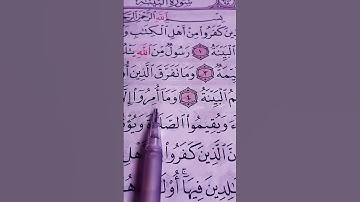 سُورَةُ الْبَيِّنَةِ
بِسْمِ اللَّهِ الرَّحْمَٰنِ الرَّ
ينَ كَفَرُوا مِنْ أَهْلِ الْكِتَابِ وَ
الْبَيِّنَةُ ١ رَسُولٌ مِنَ اللَّهِ يَتْلُ
قَيِّمَةٌ ٣ وَمَا تَفَرَّقَ الَّذِينَ أُ
مُ الْبَيِّنَةُ ٤ وَمَا أُمِرُوا إِلَّا
ءَ وَيُقِيمُوا الصَّلَاةَ وَيُؤْ
نَّ الَّذِينَ كَفَرُوا
الِدِينَ فِيهَا أُولَٰئِكَ هُ